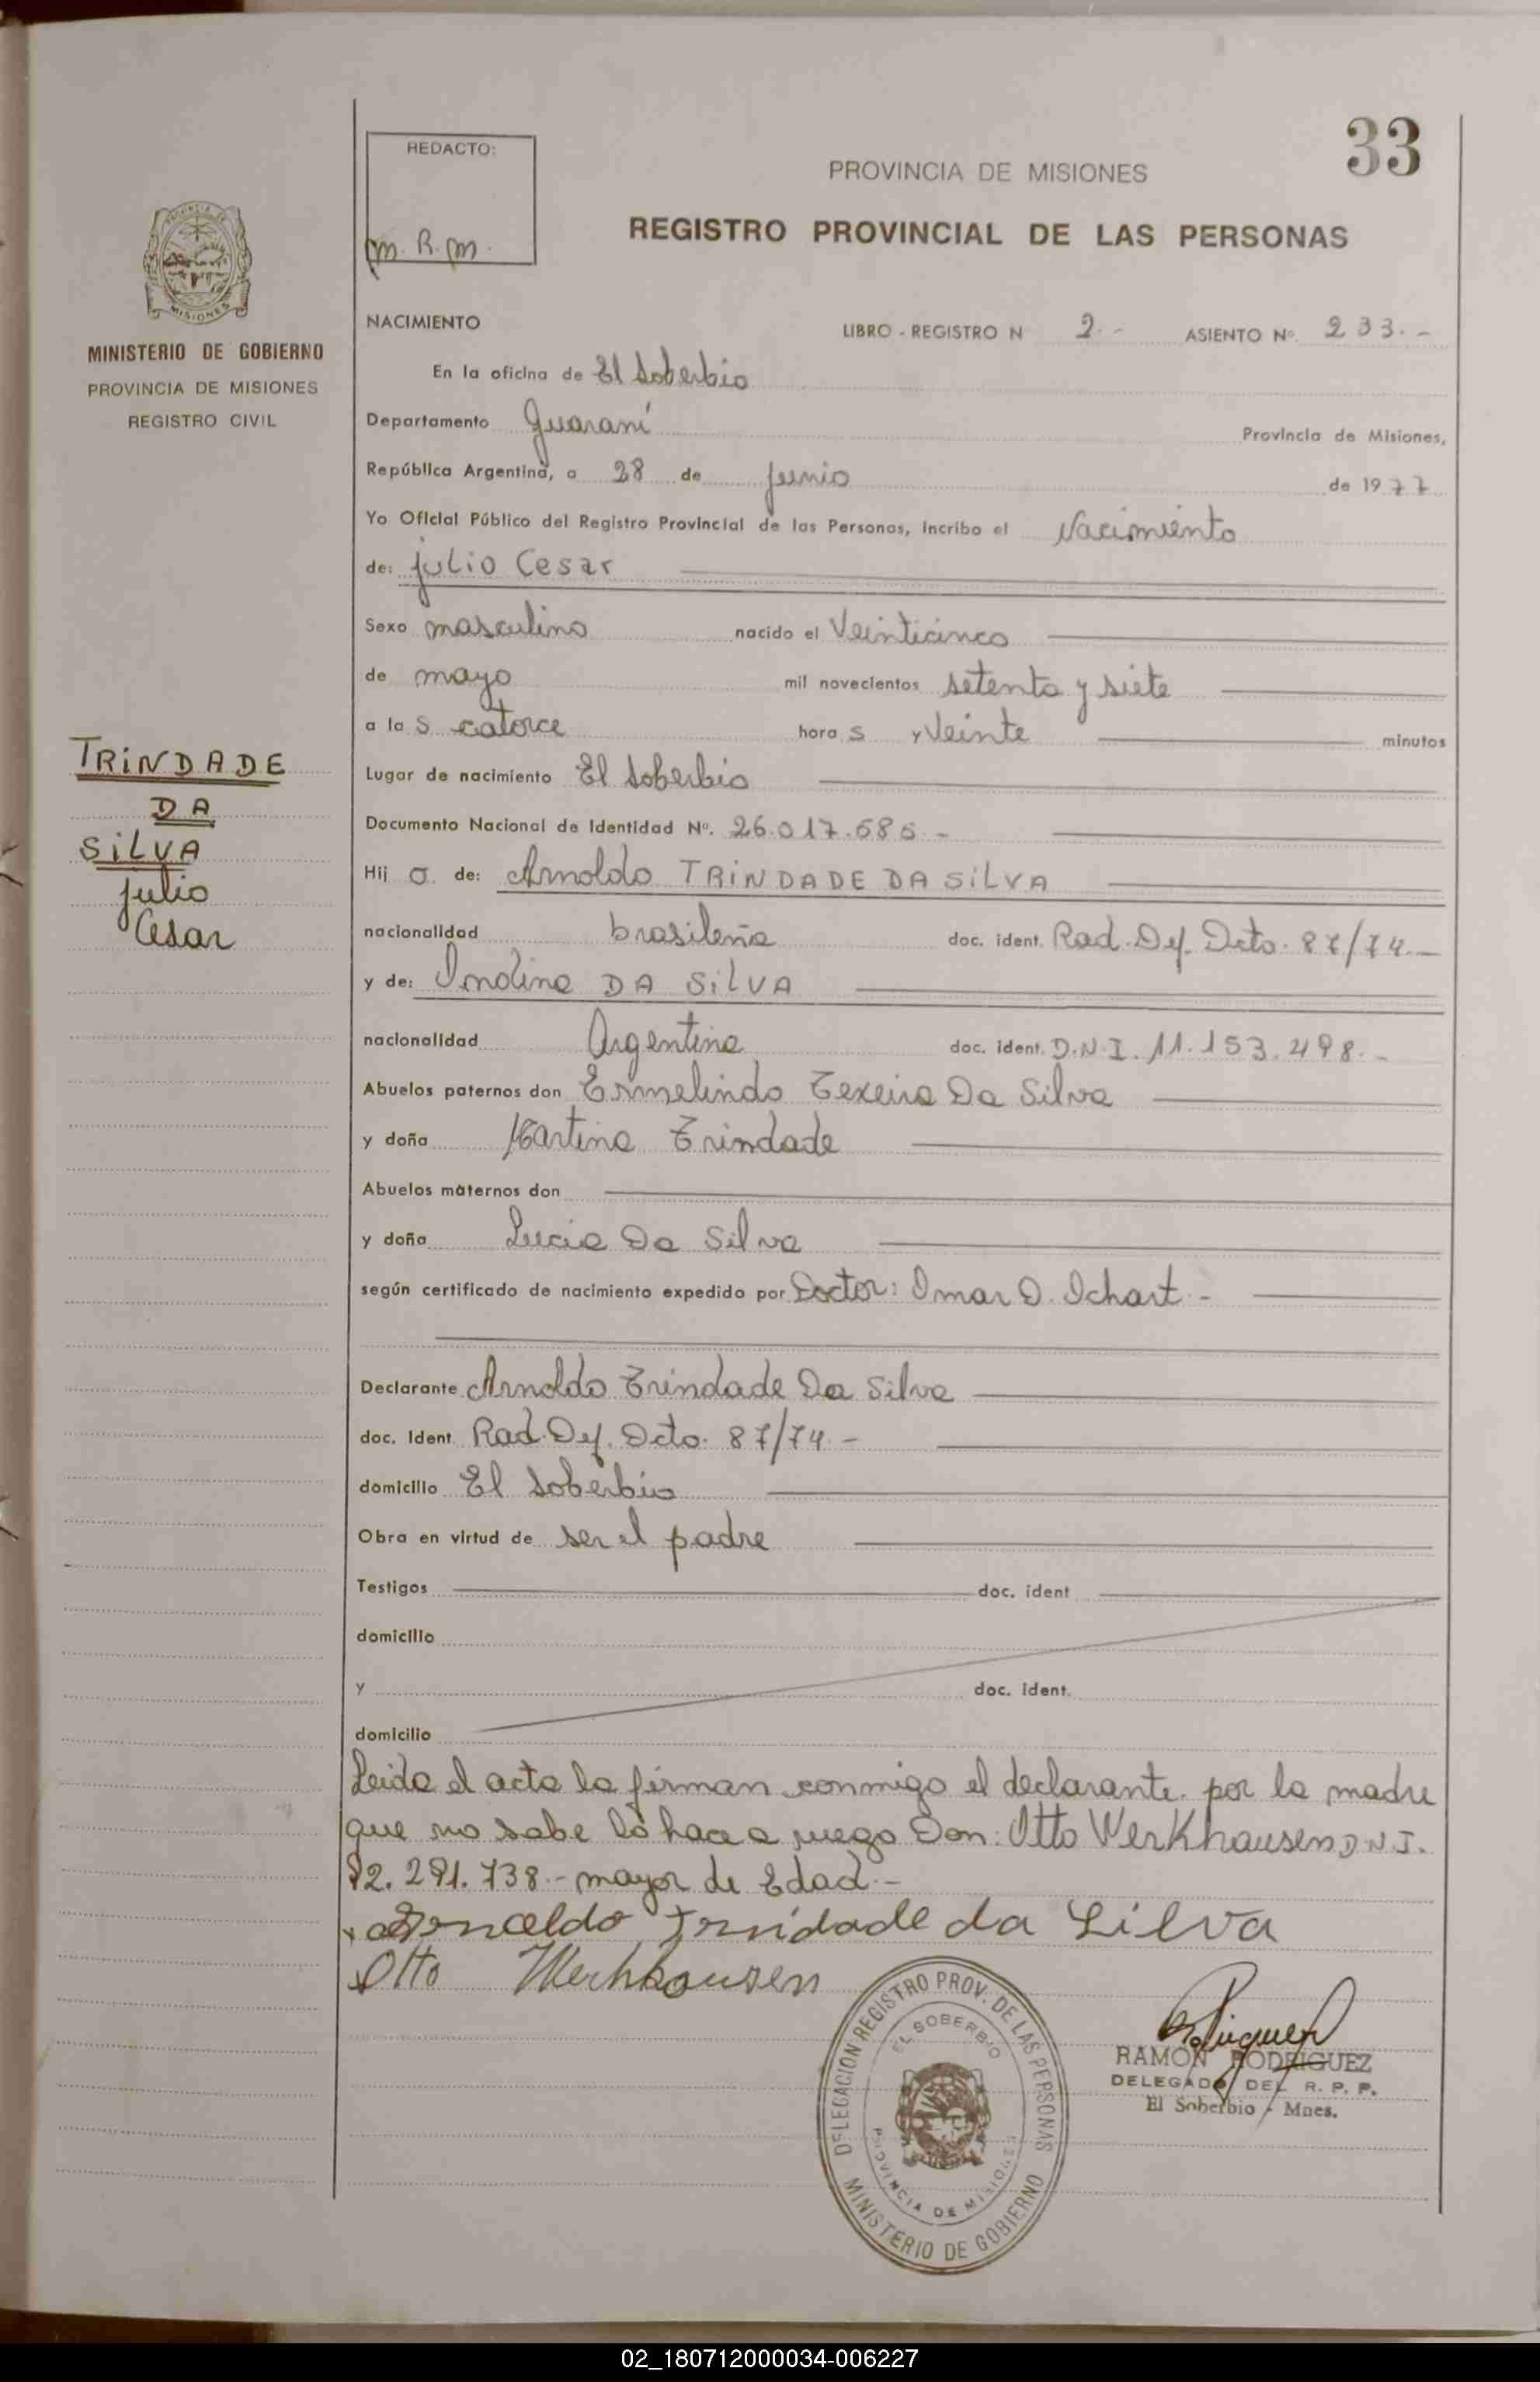 33
REDACTO:
m. R. m.
PROVINCIA DE MISIONES
REGISTRO PROVINCIAL DE LAS PERSONAS
MISIONES
MINISTERIO DE GOBIERNO
PROVINCIA DE MISIONES
REGISTRO CIVIL
NACIMIENTO LIBRO - REGISTRO N 2.- ASIENTO Nº. 233.-
En la oficina de El Soberbio
Departamento Guaraní Provincia de Misiones,
República Argentina, a 28 de junio de 1977
Yo Oficial Público del Registro Provincial de las Personas, Incribo el Nacimiento
de: julio Cesar
Sexo masculino nacido el Veinticinco
de mayo mil novecientos setenta y siete
a la s catorce hora s y Veinte minutos
Lugar de nacimiento El Soberbio
Documento Nacional de Identidad Nº. 26.017.585 -
Hij o de: Arnoldo TRINDADE DA SILVA
nacionalidad brasileña doc. ident. Rad. Def. Dcto. 87/74.-
y de: DA SILVA
nacionalidad Argentina doc. ident. D.N.I. 11.153.498.-
Abuelos paternos don Ermelindo Texeira Da Silva
y doña Martina Trindade
Abuelos maternos don
y doña Lucia Da Silva
según certificado de nacimiento expedido por Doctor: Omar O. Ichart -
Declarante Arnoldo Trindade Da Silva
doc. Ident Rad. Def. Dcto. 87/74.-
domicilio El Soberbio
Obra en virtud de ser el padre
Testigos doc. ident
domicilio
y doc. ident.
domicilio
Leida el acta la firman conmigo el declarante. por la madre
que no sabe lo hace a ruego Don: Otto Werkhausen D N I.
92.291.738.- mayor de Edad.-
Trindade da Silva
Otto Werkhausen
TRINDADE
DA
SILVA
julio
Cesar
DELEGACION REGISTRO PROV. DE LAS PERSONAS
EL SOBERBIO
PROVINCIA DE MISIONES
MINISTERIO DE GOBIERNO
RAMON RODRIGUEZ
DELEGADO DEL R. P. P.
El Soberbio - Mnes.
02_180712000034-006227